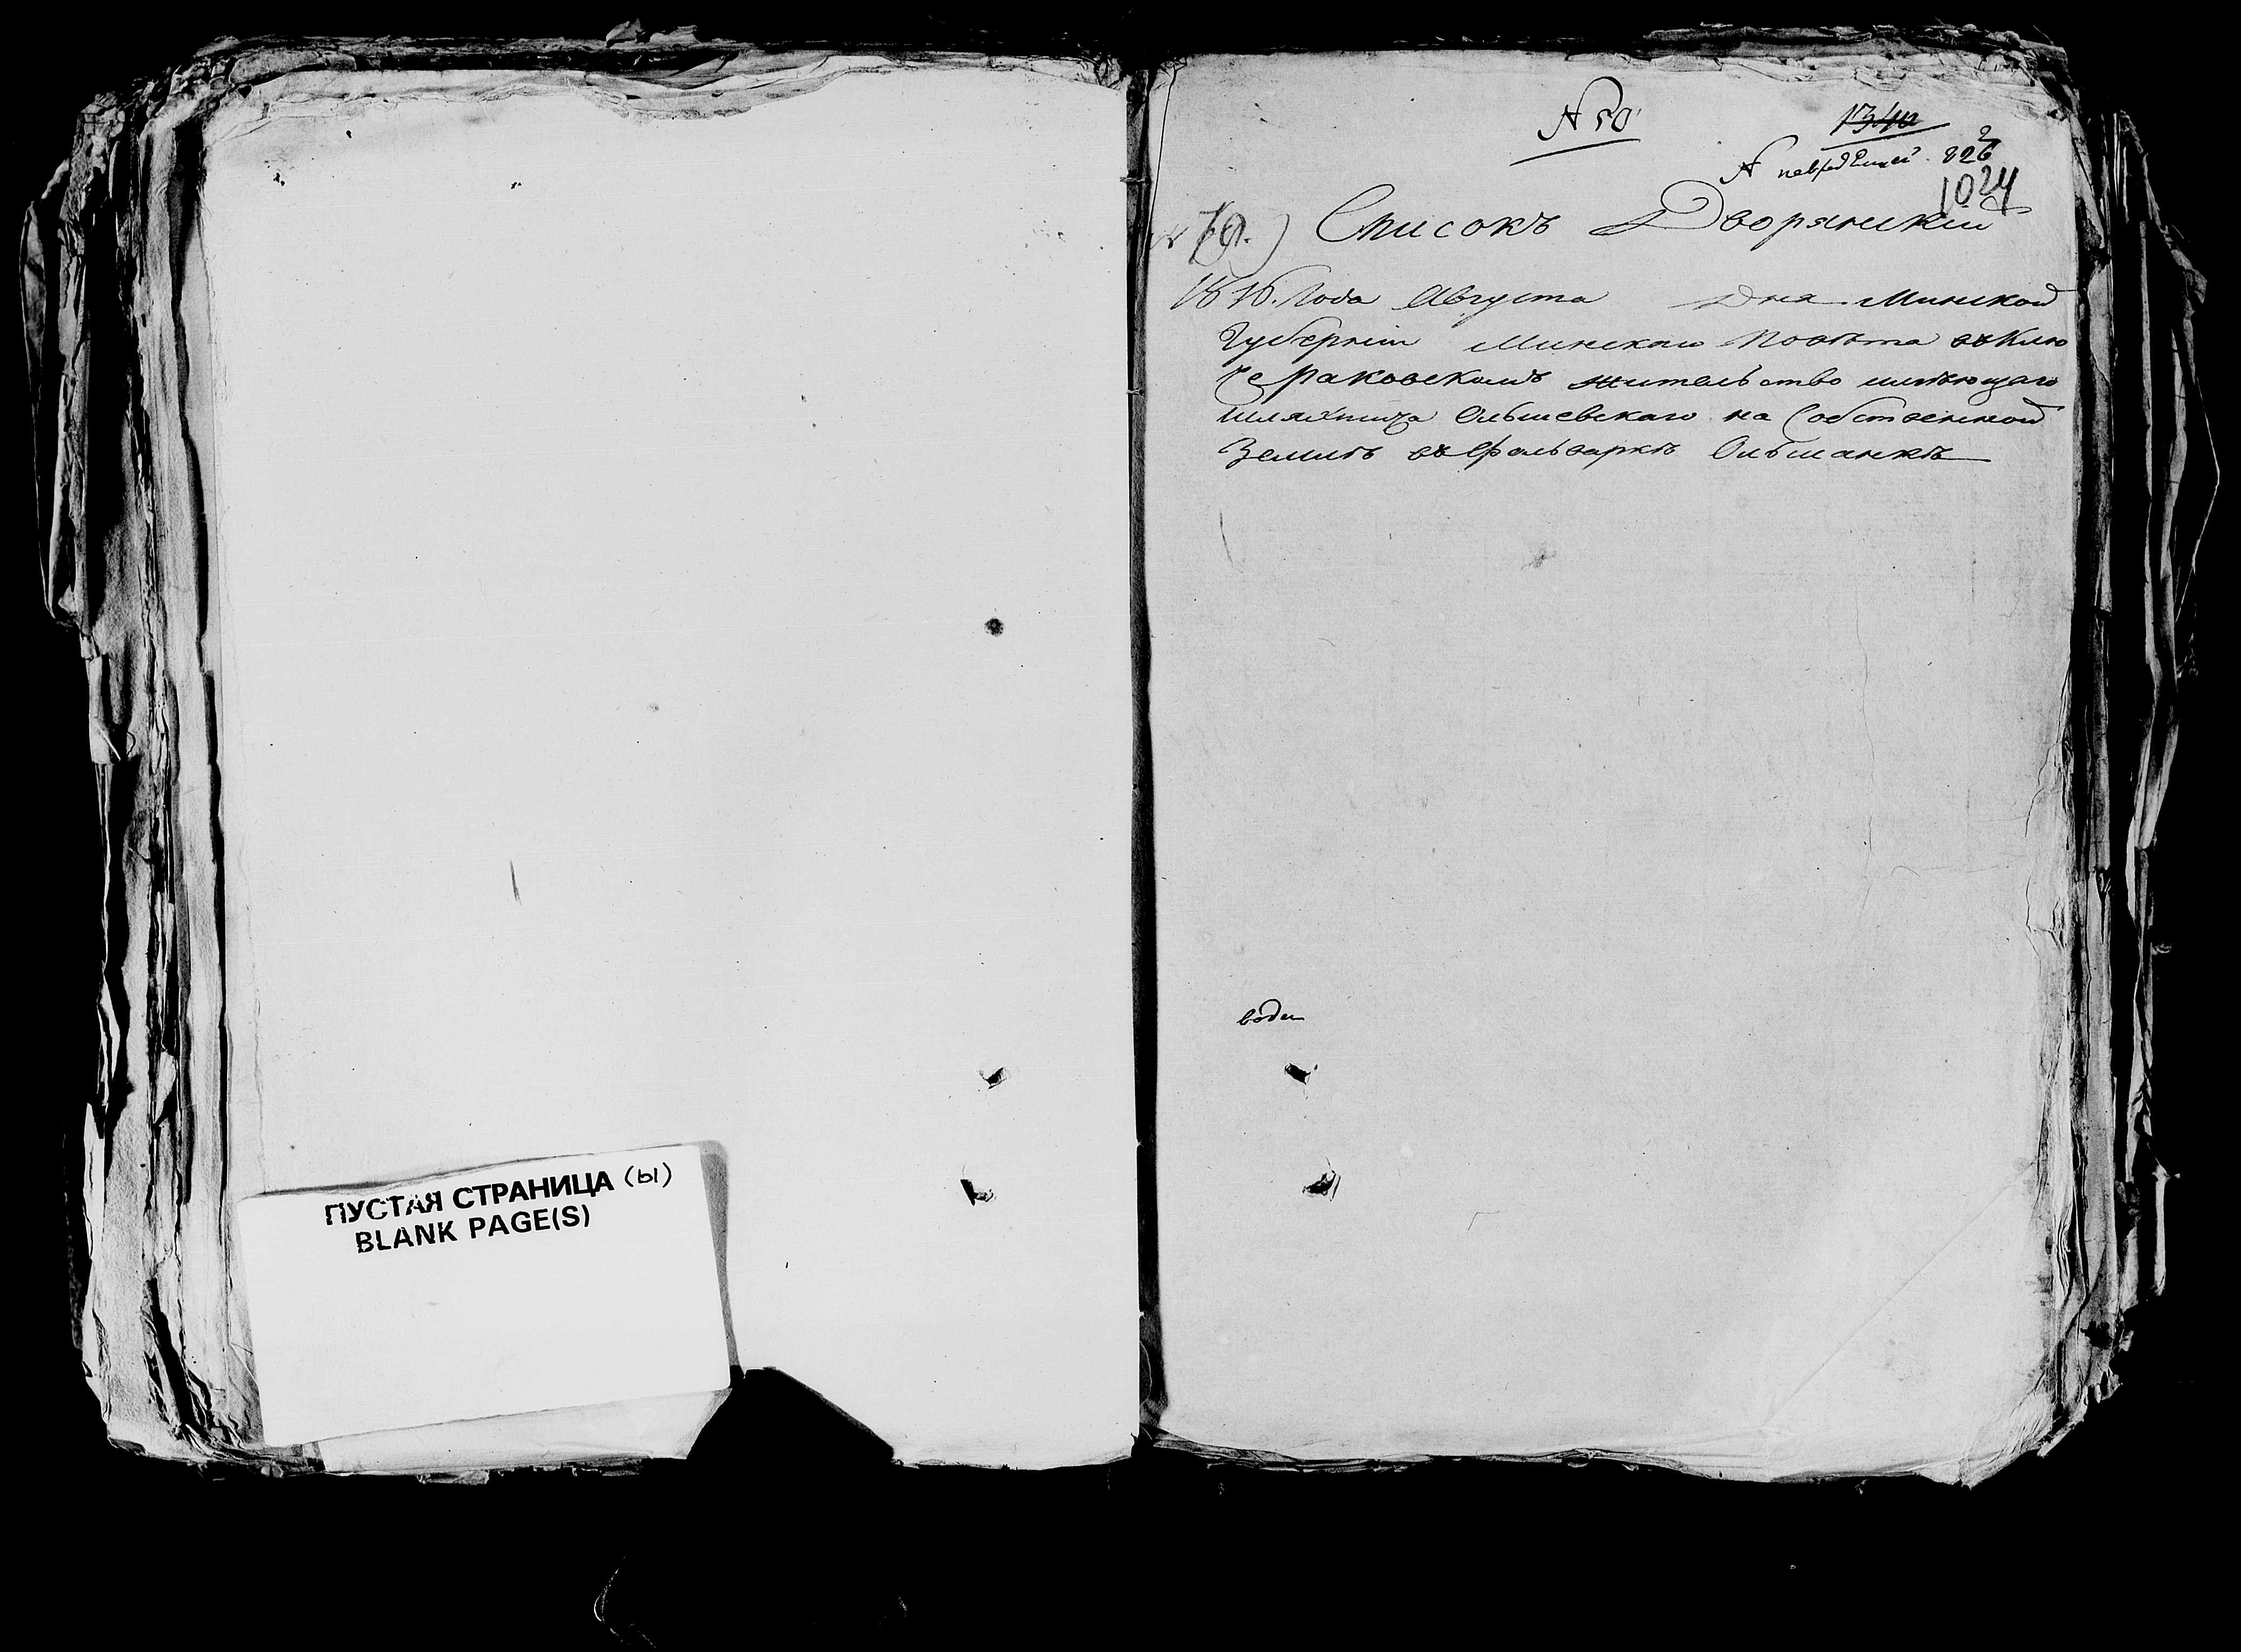 ПУСТАЯ СТРАНИЦА (ы)
BLANK PAGE(S)
№ 50
1340
№ 826
1024
Списокъ Дворянскій
1816. Года Августа Дня Минской
Губерніи Минскаго Повѣта въ Клю
че Раковскомъ жительство имѣющаго
шляхтича Ольшевскаго на Собственной
Землѣ въ фольваркѣ Ольшанкѣ